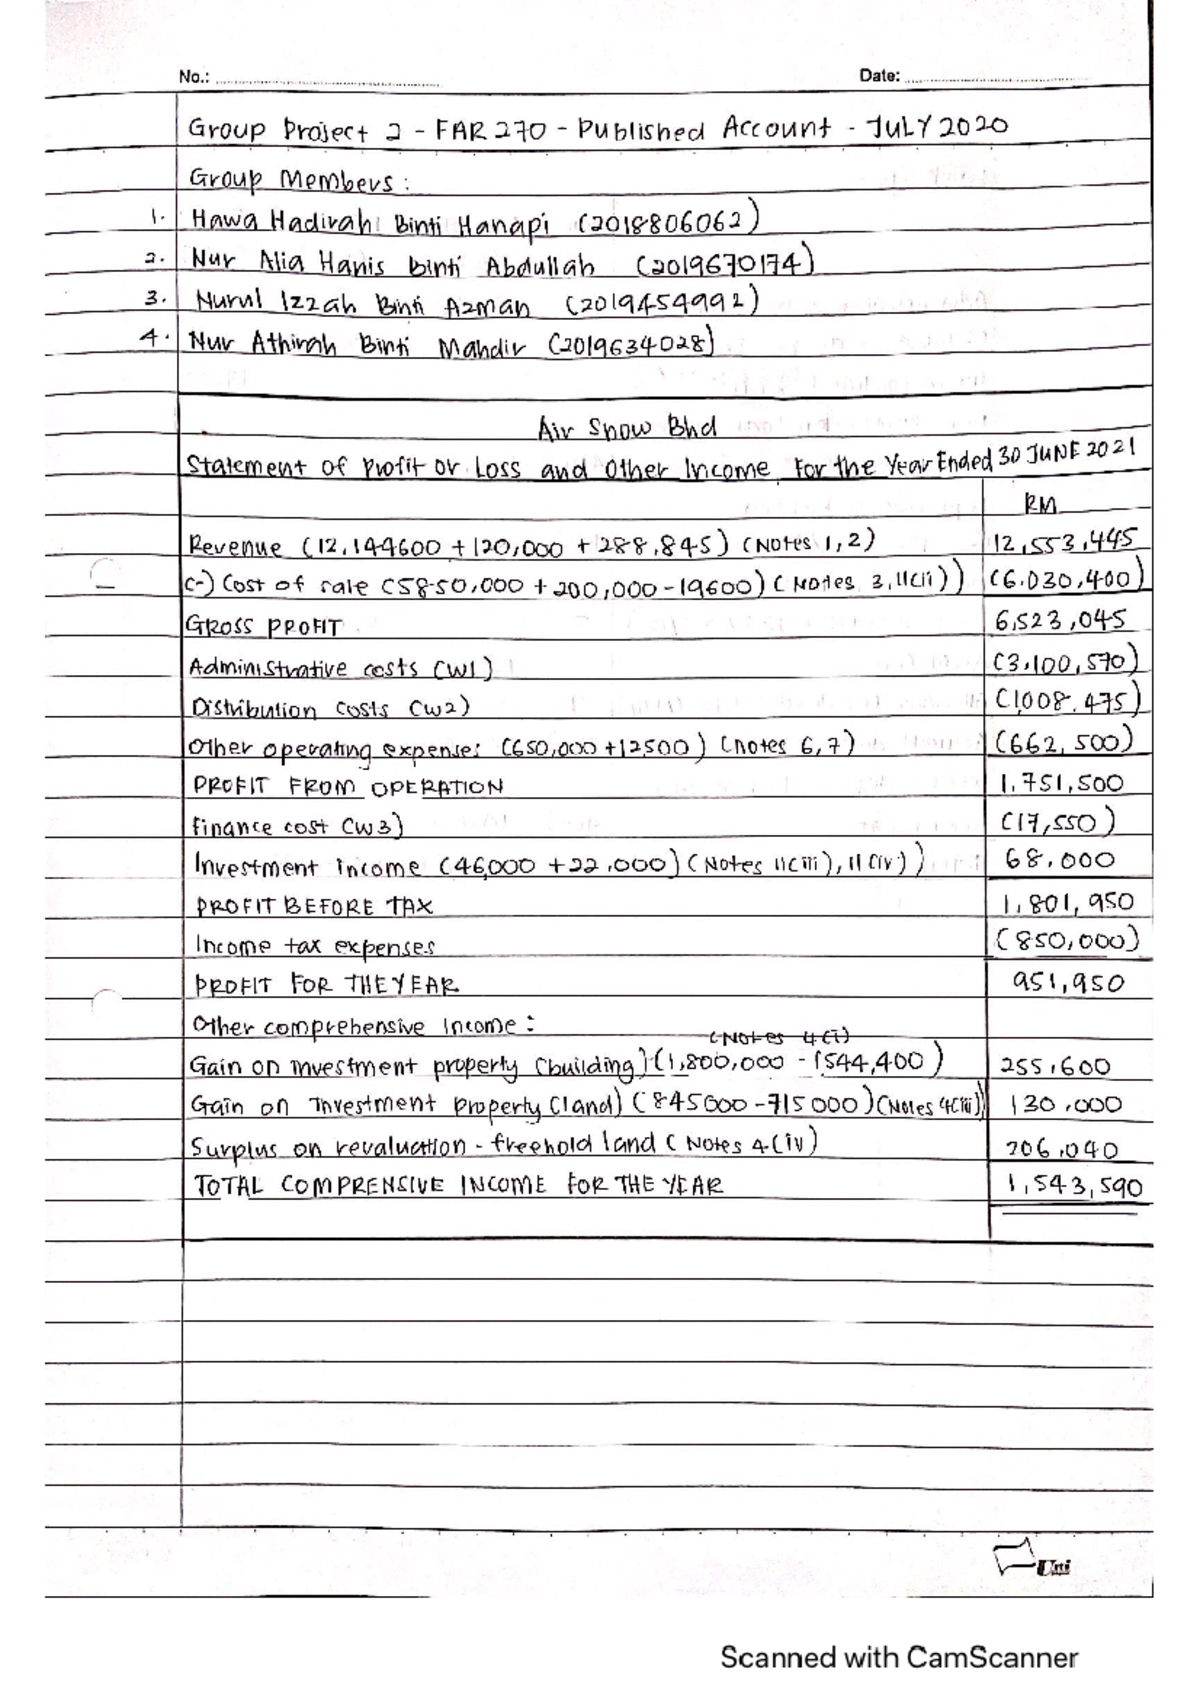 No.:
Date:
Group Project 2 - FAR 270 - Published Account - JULY 2020
Group Members:
1. Hawa Hadirah Binti Hanapi (2018806062)
2. Nur Alia Hanis Binti Abdullah (2019670174)
3. Nurul Izzah Binti Azman (2019454992)
4. Nur Athirah Binti Mahdir (2019634028)
Air Snow Bhd
Statement of Profit or Loss and Other Income For the Year Ended 30 JUNE 2021
RM
Revenue (12,144600 + 120,000 + 288,845) (Notes 1, 2) 12,553,445
(-) Cost of sale (5850,000 + 200,000 - 19600) (Notes 3, 11(ii)) (6,030,400)
GROSS PROFIT 6,523,045
Administrative costs (W1) (3,100,570)
Distribution costs (W2) (1,008,475)
Other operating expenses (650,000 + 12500) (notes 6, 7) (662,500)
PROFIT FROM OPERATION 1,751,500
finance cost (W3) (17,550)
Investment income (46,000 + 22,000) (Notes 11(iii), 11(iv)) 68,000
PROFIT BEFORE TAX 1,801,950
Income tax expenses (850,000)
PROFIT FOR THE YEAR 951,950
Other comprehensive Income:
(Notes 4(i)
Gain on investment property (building) (1,800,000 - 1544,400) 255,600
Gain on Investment Property (land) (845000 - 715000) (Notes 4(iii)) 130,000
Surplus on revaluation - freehold land (Notes 4(iv) 206,040
TOTAL COMPRENSIVE INCOME FOR THE YEAR 1,543,590
Uni
Scanned with CamScanner